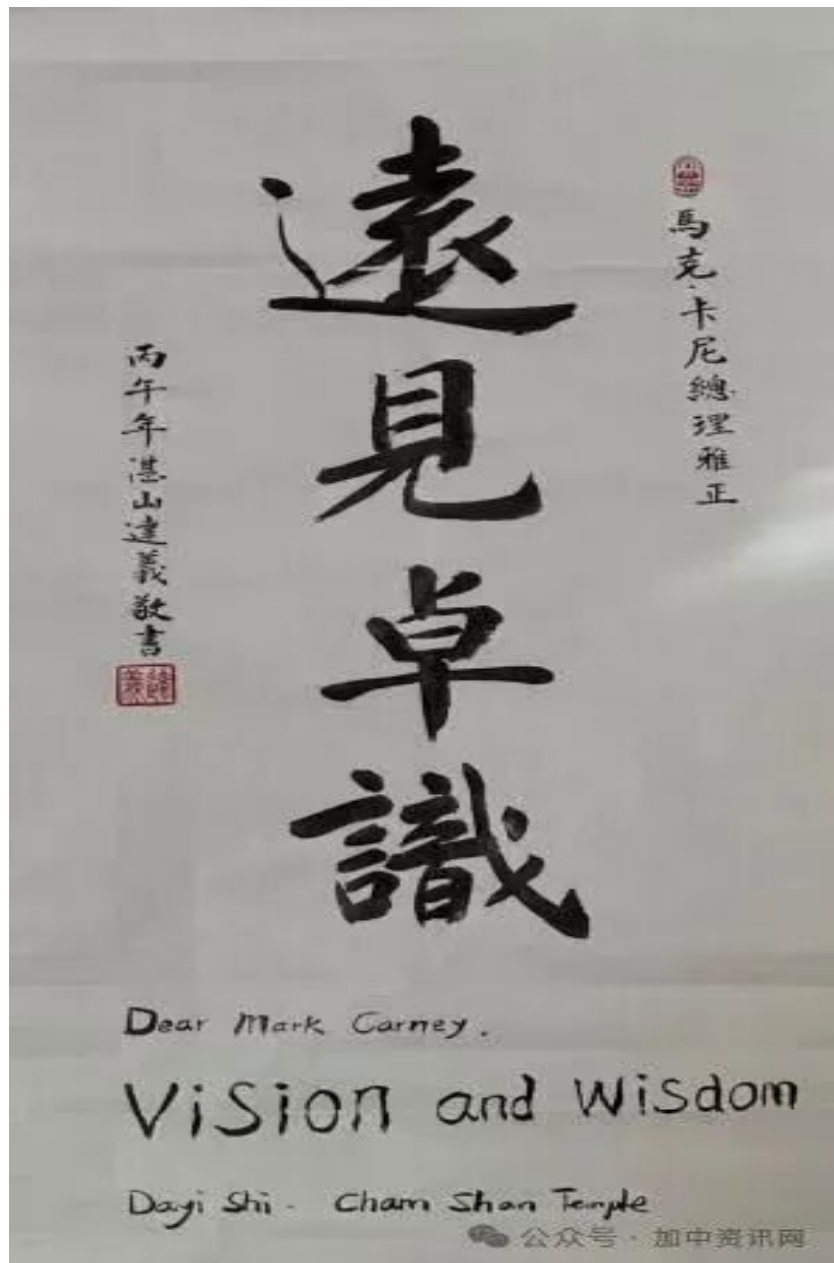 馬克·卡尼總理雅正
遠見卓識
丙午年湛山達義敬書
達義
Dear Mark Carney.
Vision and Wisdom
Dayi Shi - Cham Shan Temple
公众号 · 加中资讯网